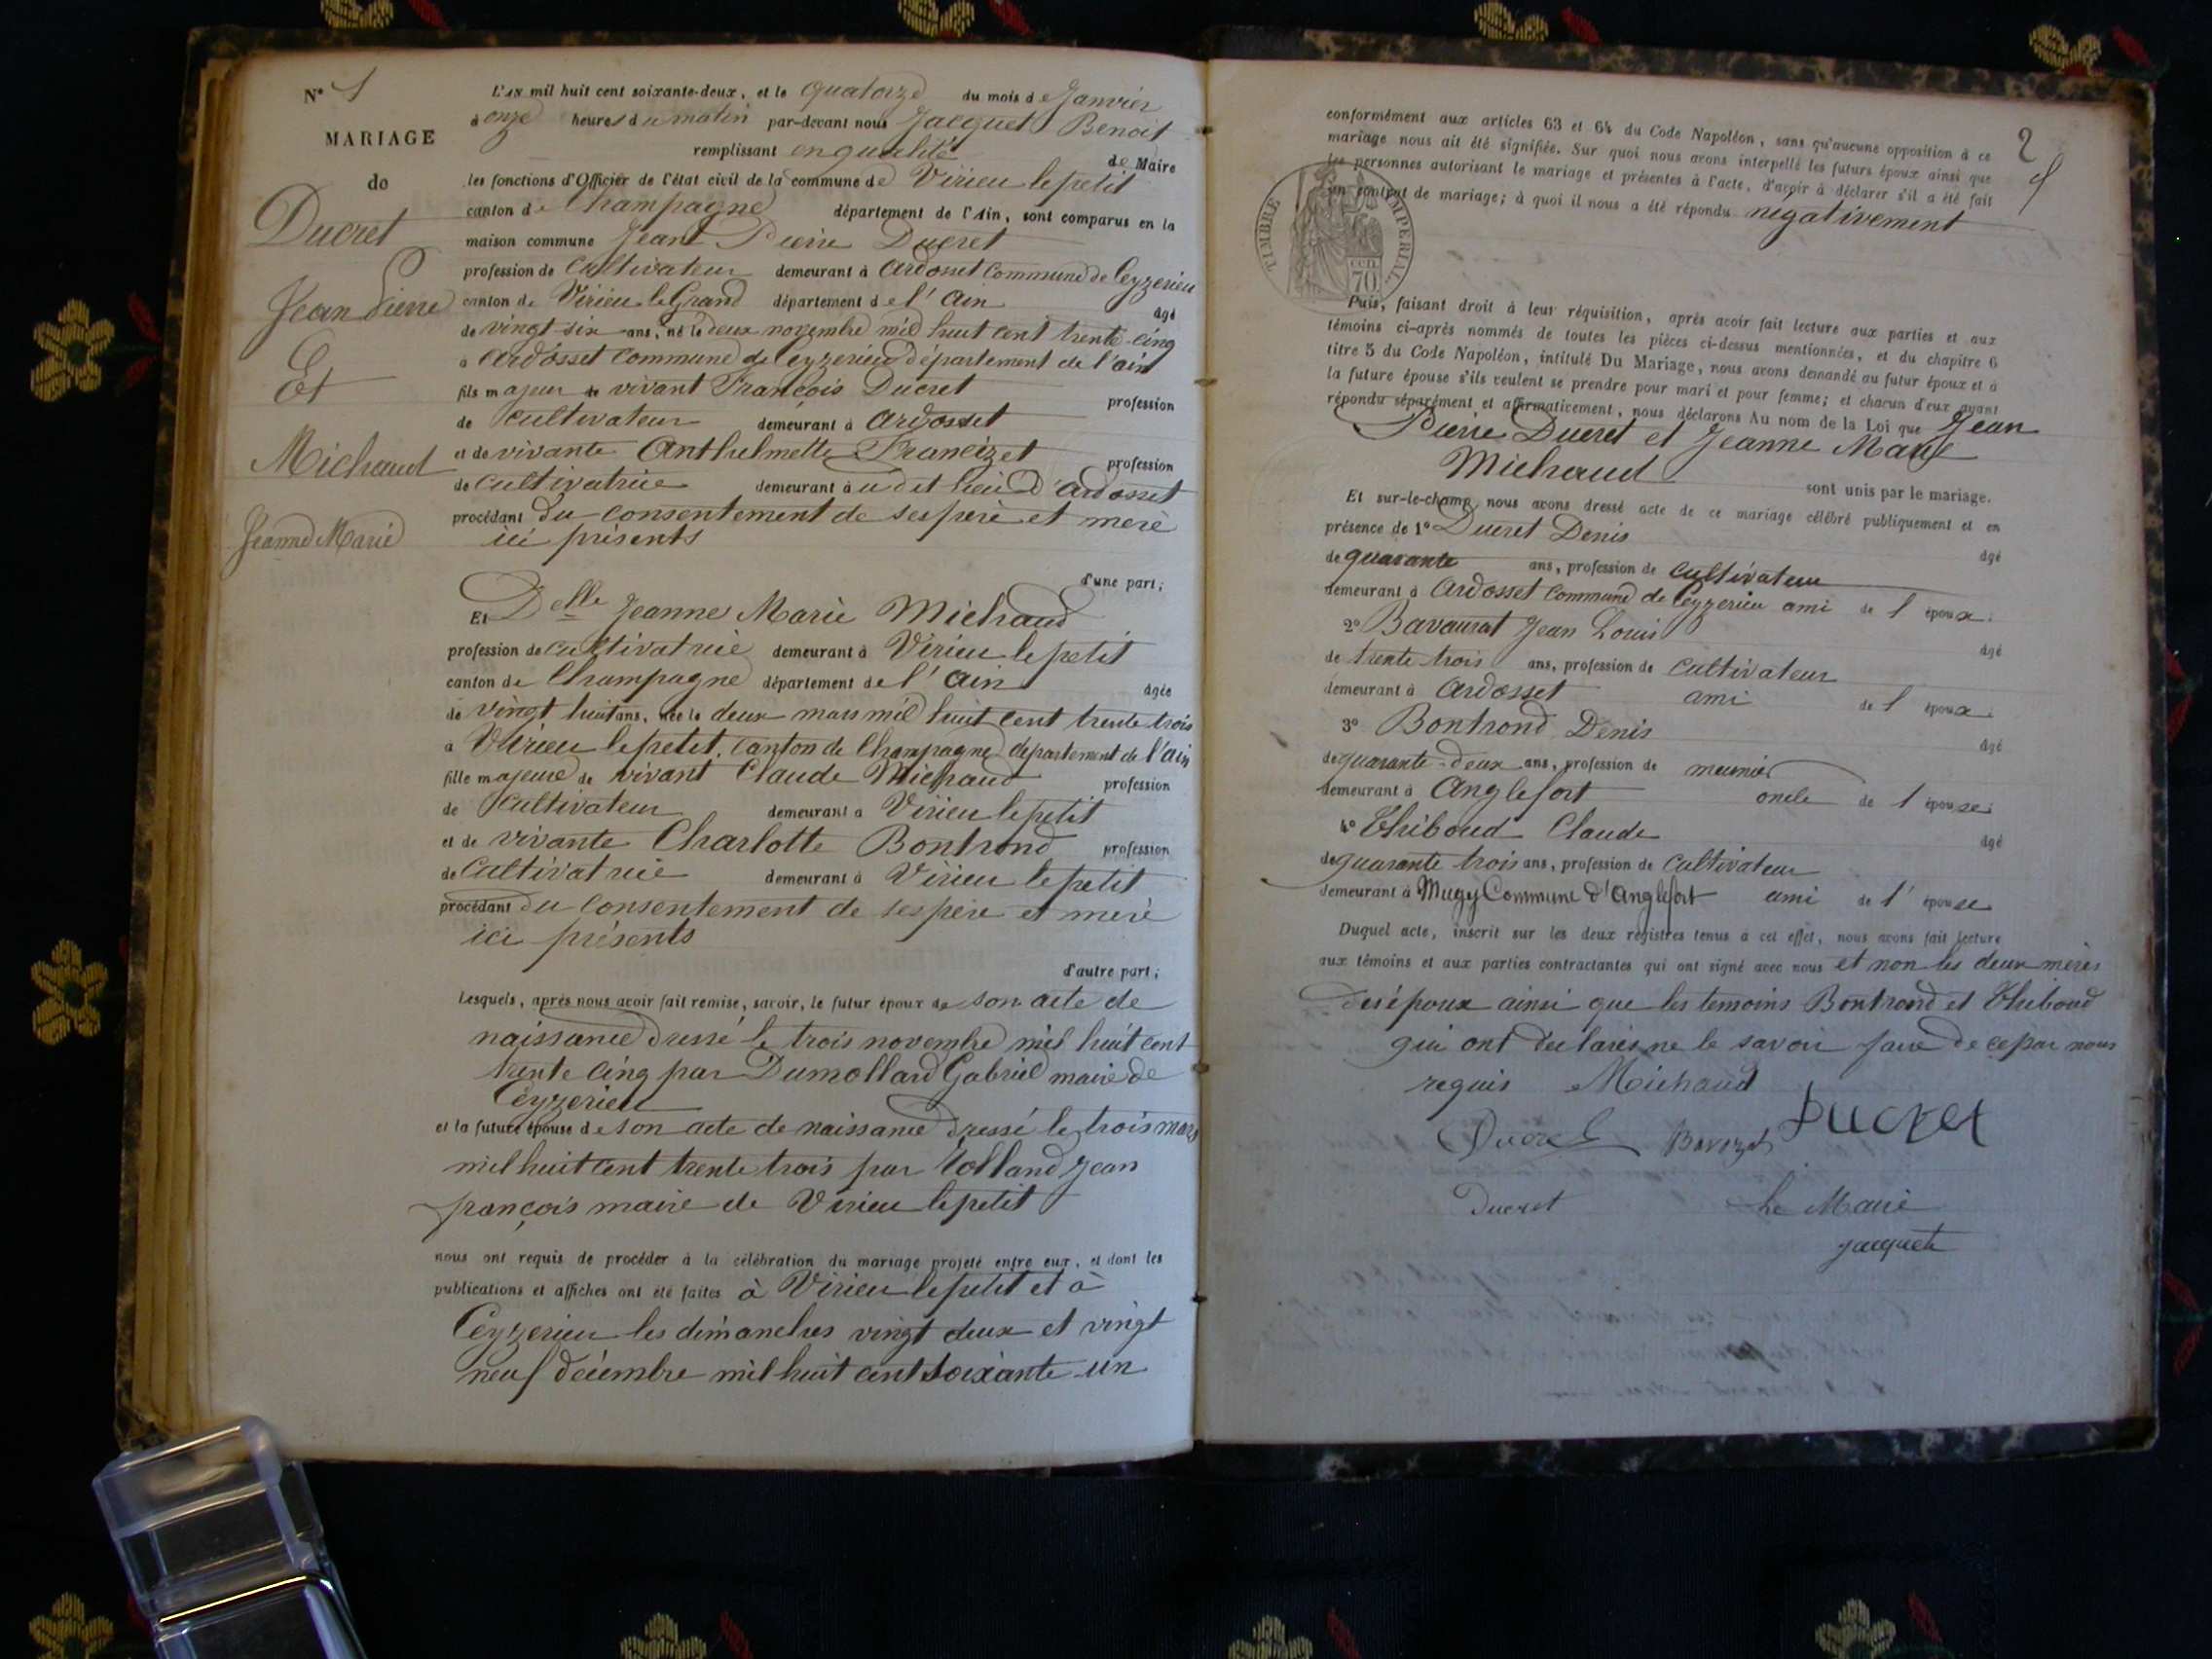 N° 1
MARIAGE
de
Ducret
Jean Pierre
Et
Michaud
Jeanne Marie
L'AN mil huit cent soixante-deux, et le quatorze du mois de Janvier
à onze heures du matin par-devant nous Jacquet Benoit
remplissant en qualité de Maire
les fonctions d'Officier de l'état civil de la commune de Virieu le petit
canton de Champagne département de l'Ain, sont comparus en la
maison commune Jean Pierre Ducret
profession de Cultivateur demeurant à Ardosset Commune de Ceyzerieu
canton de Virieu le Grand département de l'ain âgé
de vingt-six ans, né le deux novembre mil huit cent trente-cinq
à Ardosset Commune de Ceyzerieu département de l'ain
fils majeur de vivant François Ducret profession
de Cultivateur demeurant à Ardosset
et de vivante Anthelmette Francizet profession
de cultivatrice demeurant à udit lieu d'Ardosset
procédant du consentement de ses père et mere
ici présents
d'une part;
Et Delle Jeanne Marie Michaud
profession de cultivatrice demeurant à Virieu le petit
canton de Champagne département de l'ain âgée
de vingt huit ans, née le deux mars mil huit cent trente trois
à Virieu le petit, canton de Champagne département de l'ain
fille majeure de vivant Claude Michaud profession
de Cultivateur demeurant à Virieu le petit
et de vivante Charlotte Bontrond profession
de Cultivatrice demeurant à Virieu le petit
procédant du consentement de ses père et mere
ici présents
d'autre part;
Lesquels, après nous avoir fait remise, savoir, le futur époux de son acte de
naissance dressé le trois novembre mil huit cent
trente cinq par Dumollard Gabriel maire de
Ceyzerieu
et la future épouse de son acte de naissance dressé le trois mars
mil huit cent trente trois par Jean
françois maire de Virieu le petit
nous ont requis de procéder à la célébration du mariage projeté entre eux, et dont les
publications et affiches ont été faites à Virieu le petit et à
Ceyzerieu les dimanches vingt deux et vingt
neuf décembre mil huit cent soixante un
2
conformément aux articles 63 et 64 du Code Napoléon, sans qu'aucune opposition à ce
mariage nous ait été signifiée. Sur quoi nous avons interpellé les futurs époux ainsi que
les personnes autorisant le mariage et présentes à l'acte, d'avoir à déclarer s'il a été fait
un contrat de mariage; à quoi il nous a été répondu négativement
TIMBRE IMPERIAL
70 cen
Puis, faisant droit à leur réquisition, après avoir fait lecture aux parties et aux
témoins ci-après nommés de toutes les pièces ci-dessus mentionnées, et du chapitre 6
titre 5 du Code Napoléon, intitulé Du Mariage, nous avons demandé au futur époux et à
la future épouse s'ils veulent se prendre pour mari et pour femme; et chacun d'eux ayant
répondu séparément et affirmativement, nous déclarons Au nom de la Loi que Jean
Pierre Ducret et Jeanne Marie
Michaud sont unis par le mariage.
Et sur-le-champ nous avons dressé acte de ce mariage célébré publiquement et en
présence de 1° Ducret Denis âgé
de quarante ans, profession de cultivateur
demeurant à Ardosset commune de Ceyzerieu ami de l'époux.
2° Jean Louis âgé
de trente trois ans, profession de cultivateur
demeurant à Ardosset ami de l époux.
3° Bontrond Denis âgé
de quarante-deux ans, profession de meunier
demeurant à Anglefort oncle de l épouse.
4° Thiboud Claude âgé
de quarante trois ans, profession de cultivateur
demeurant à Commune d'Anglefort ami de l' épouse
Duquel acte, inscrit sur les deux registres tenus à cet effet, nous avons fait lecture
aux témoins et aux parties contractantes qui ont signé avec nous et non les deux mères
des époux ainsi que les temoins Bontrond et Thiboud
qui ont déclarés ne le savoir faire de ce par nous
requis Michaud
Ducret Ducret
Ducret Le Maire
Jacquet